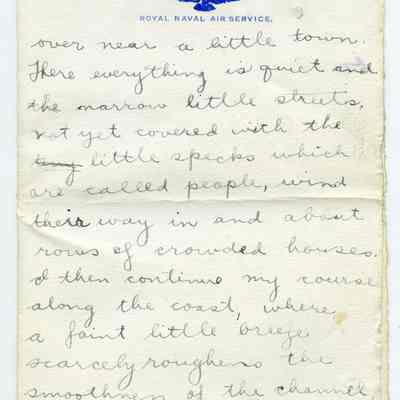 ROYAL NAVAL AIR SERVICE.
over near a little town.
There everything is quiet and
the narrow little streets,
not yet covered with the
tiny little specks which
are called people, wind
their way in and about
rows of crowded houses.
I then continue my course
along the coast, where
a faint little breeze
scarcely roughens the
smoothness of the channel,